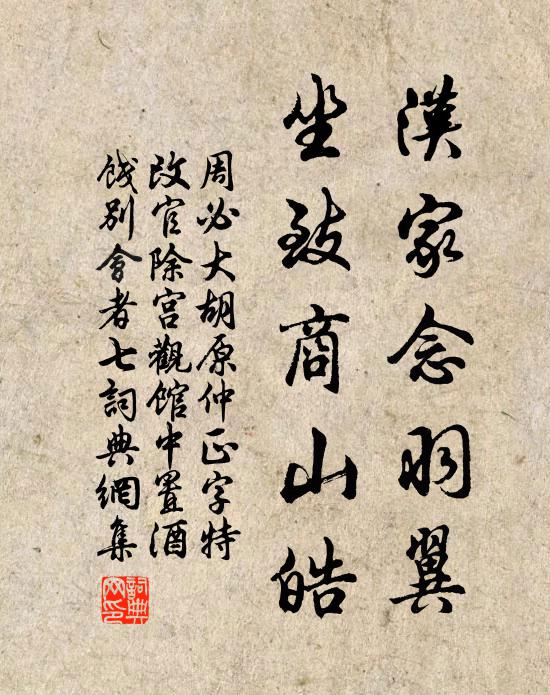 漢家念羽翼
坐致商山皓
周必大胡原仲正字特
改官除宫觀館中置酒
餞別會者七詞典網集
詞典
网印